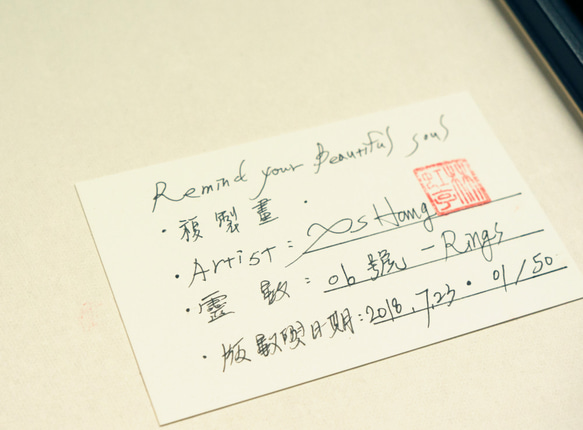 Remind your Beautiful soul
・複製畫・
・Artist：Xs Hong
・靈數：06號-Rings
・版數與日期：2018.7.23・01/50